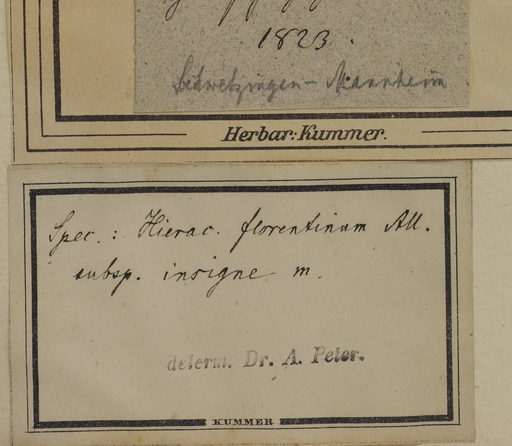 1823.
Schwetzingen - Mannheim
Herbar: Kummer.
Spec. : Hierac. florentinum All.
subsp. insigne m.
determ. Dr. A. Peter.
KUMMER